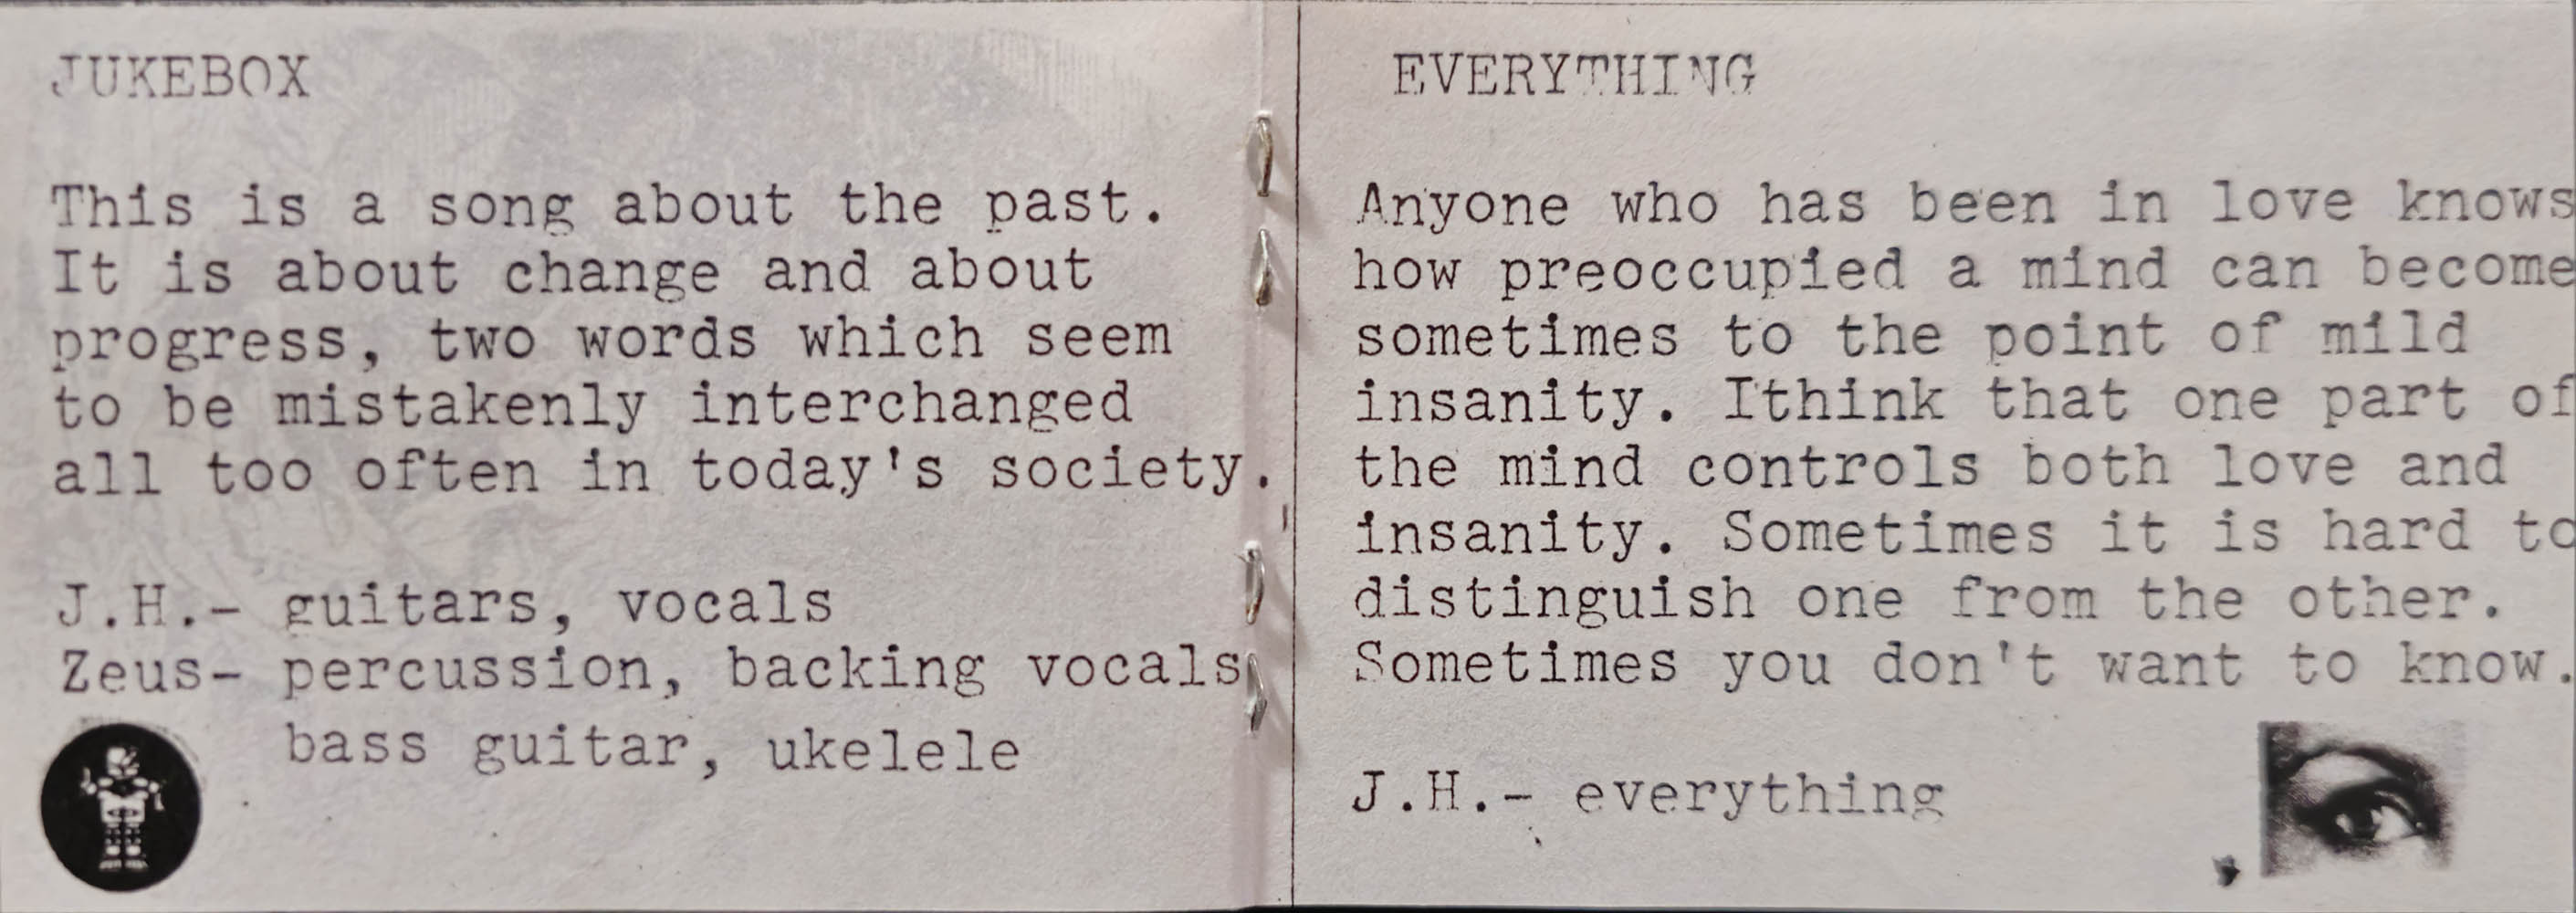 JUKEBOX
This is a song about the past.
It is about change and about
progress, two words which seem
to be mistakenly interchanged
all too often in today's society.
J.H.- guitars, vocals
Zeus- percussion, backing vocals
bass guitar, ukelele
EVERYTHING
Anyone who has been in love knows
how preoccupied a mind can become
sometimes to the point of mild
insanity. Ithink that one part of
the mind controls both love and
insanity. Sometimes it is hard to
distinguish one from the other.
Sometimes you don't want to know.
J.H.- everything